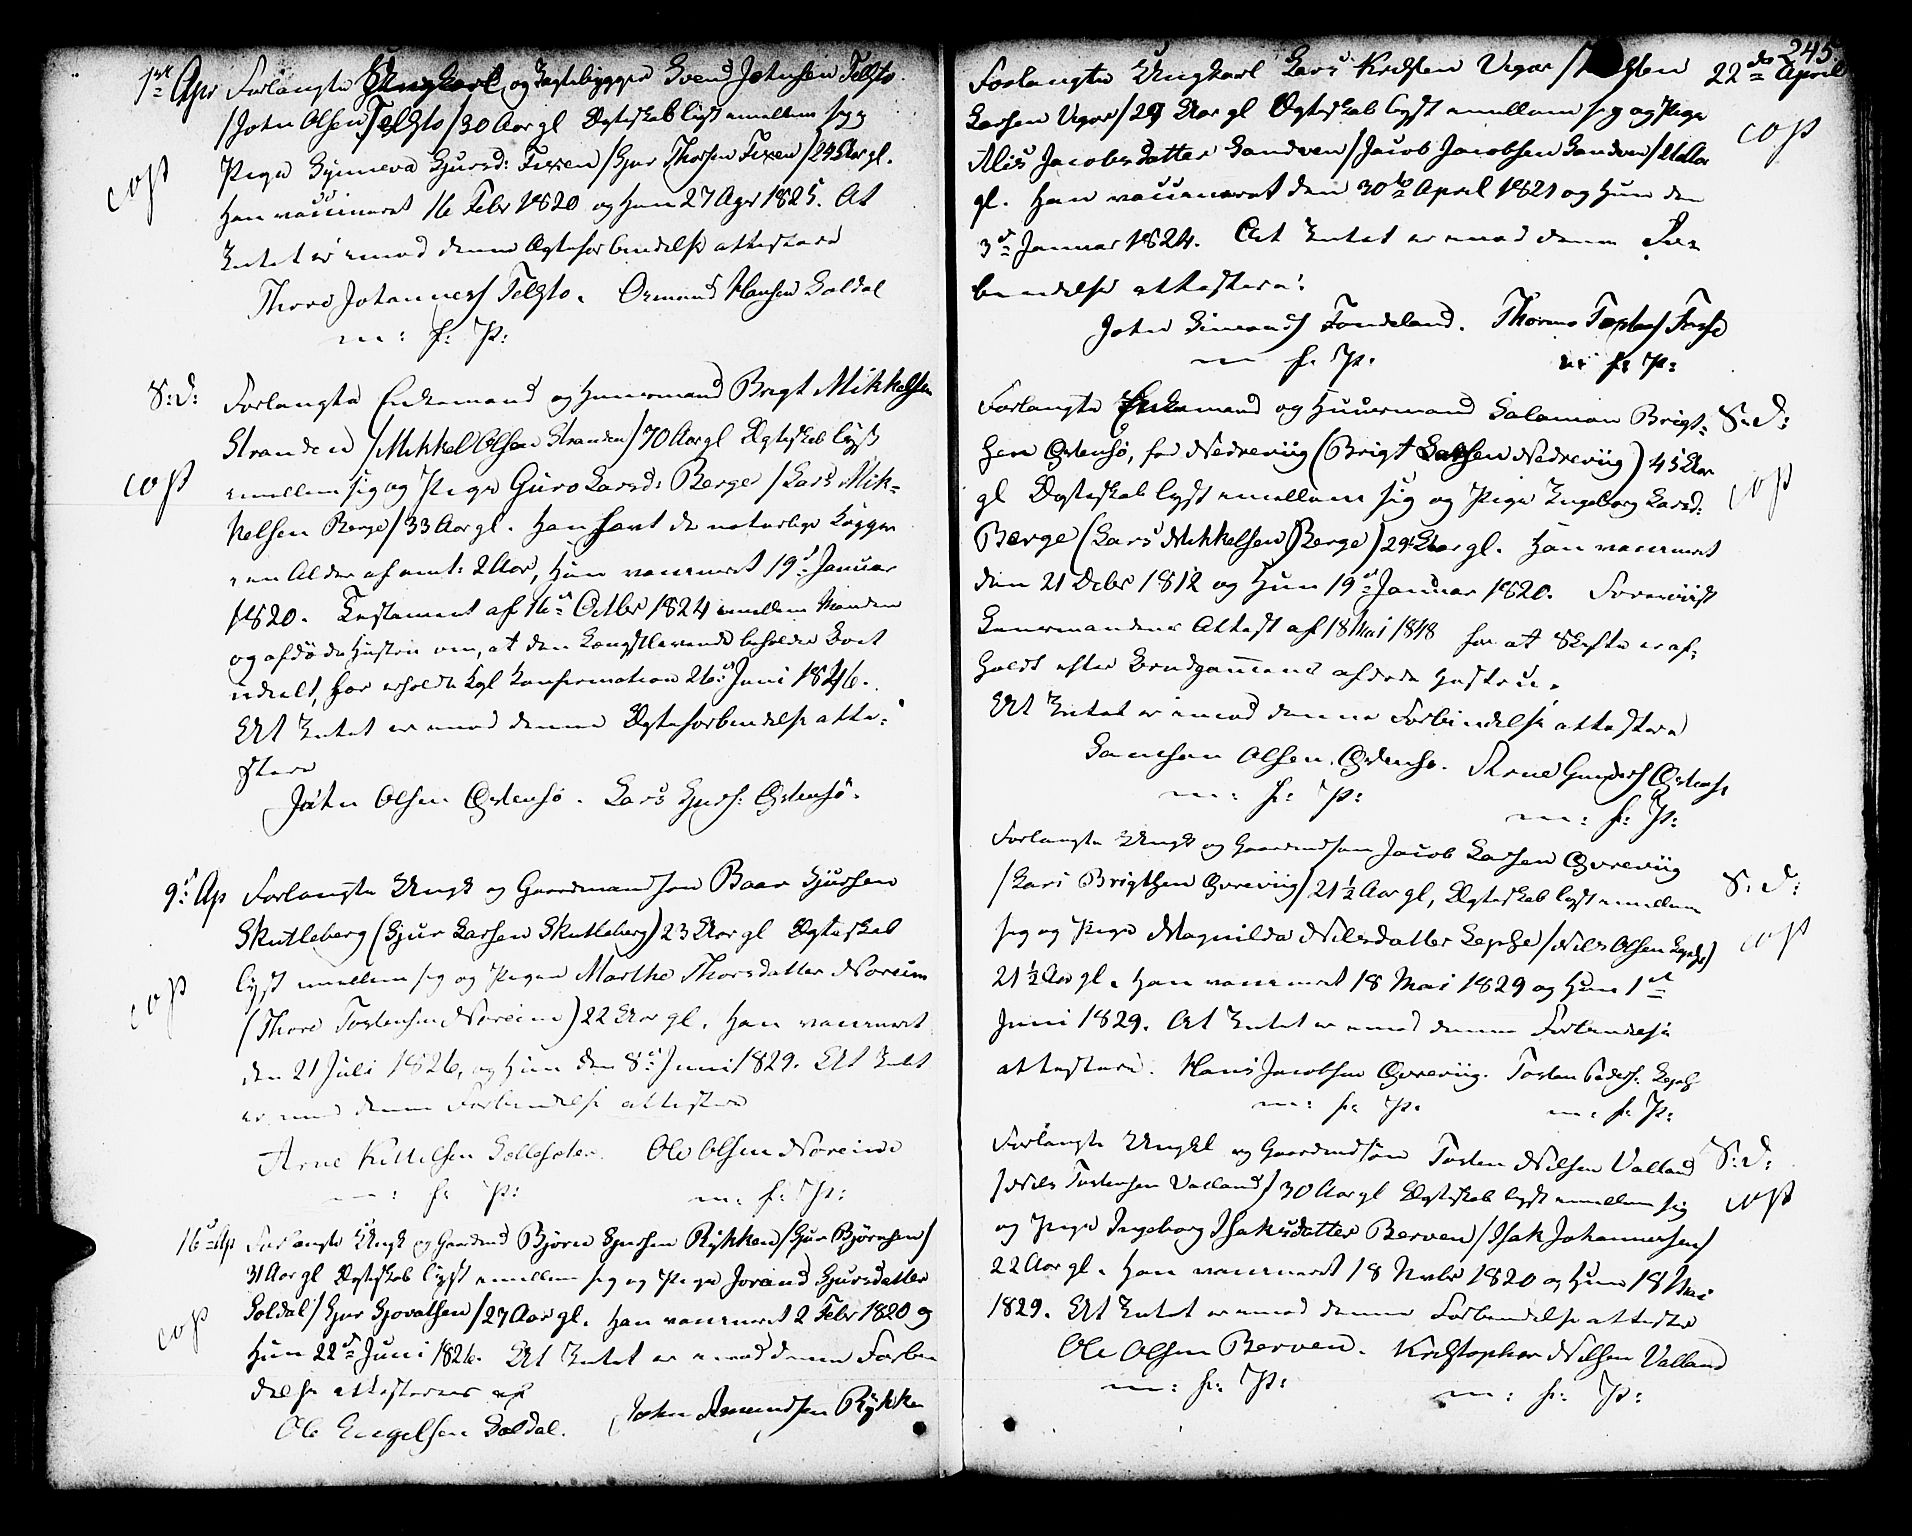 1ste Apr Forlangte Ungkarl og Jagtebygger Svend Johnsen Telsto
/John Olsen Telsto/ 30 Aar gl Ægteskab lyst imellem sig og
Pige Synneva Gjursd: Fixen /Gjur Thorsen Fixen/ 24 Aar gl.
cop
Han vaccineret 16 Febr 1820 og Hun 27 Agr 1825. At
Intet er imod denne Ægteforbindelse attestere
Thore Johanness Telsto. Osmund Hansen Soldal
m: f: P:
S: D: Forlangte Enkemand og Huusmand Brigt Mikkelsen
Stranden /Mikkel Olsen Stranden/ 70 Aar gl Ægteskab lyst
cop
imellem sig og Pige Guro Larsd: Berge /Lars Mik-
kelsen Berge/ 33 Aar gl. Han havt de naturlige Kopper
i en Alder af omt: 2 Aar, Hun vaccineret 19de Januar
1820. Testament af 16de Octbr 1824 imellem Manden
og afdøde Hustru om, at den Længstlevende beholder Boet
udeelt, har erholdt Kgl Konfirmation 26de Juni 1826.
At Intet er imod denne Ægteforbindelse atte-
stere
John Olsen Østensø. Lars Gjurs: Østensø.
9de Ap Forlangte Ungk og Gaardmandsøn Baar Gjursen
Skutleberg (Gjur Larsen Skutleberg) 23 Aar gl Ægteskab
lyst imellem sig og Pigen Marthe Thorsdatter Noreim
cop
(Thore Torstensen Noreim) 22 Aar gl. Han vaccineret
den 21 Juli 1826, og Hun den 8de Juni 1829. At Intet
er imod denne Forbindelse attestere
Arne Kittilsen Solleseter. Ole Olsen Noreim
m: f: P: m: f: P:
16de Ap Forlangte Ungk og Gaardmd Bjørn Gjursen Rykken /Gjur Bjørnsen/
31 Aar gl Ægteskab lyst imellem sig og Pige Jorand Gjursdatter
Soldal /Gjur Sjovatsen/ 27 Aar gl. Han vaccineret 2 Febr 1820 og
cop
Hun 22de Juni 1826. At Intet er imod denne Forbin
delse attesteres af
Ole Engelsen Soldal. John Amundsen Rykken
245
Forlangte Ungkarl Lars Kristen Vigør / 22de April
Larsen Vigør/ 29 Aar gl Ægteskab lyst imellem sig og Pige
cop
Alis Jacobsdatter Sandven /Jacob Jacobsen Sandven/ Aar
gl. Han vaccineret den 30te April 1821 og Hun den
3de Januar 1824. At Intet er imod denne For-
bindelse attestere:
John Simonss Tondeland. Thorme
m f: P: m f: P:
Forlangte Enkemand og Huusmand Salamon Brigt- S: D:
sen Østensø, før Nedreviig (Brigt Larsen Nedreviig) 45 Aar
gl Ægteskab lyst imellem sig og Pige Ingeborg Larsd:
cop
Berge (Lars Mikkelsen Berge) 24 Aar gl. Han vaccineret
den 21 Debr 1812 og Hun 19de Januar 1820. Foreviist
Lensmandens Attest af 18 Mai 1848 for at Skifte er af-
holdt efter Brudgommens afdøde Hustru.
At Intet er imod denne Forbindelse attestere
Samson Olsen Østensø. Arne Gunders Østensø
m: f: P: m: f: P:
Forlangte Ungk og Gaardmdsøn Jacob Larsen Øvreviig
/Lars Brigtsen Øvreviig/ 21½ Aar gl, Ægteskab lyst imellem S: D:
sig og Pige Magnilda Nilsdatter Lepse /Nils Olsen Lepse/
cop
21½ Aar gl. Han vaccineret 18 Mai 1829 og Hun 1ste
Juni 1829. At Intet er imod denne Forbindelse
attestere. Hans Jacobsen Øvreviig. Torsten Peders: Lepse
m: f: P: m: f: P:
Forlangte Ungkl og Gaardmdsøn Torsten Nilsen Valland S: D:
/Nils Torstensen Valland/ 30 Aar gl Ægteskab lyst imellem sig
cop
og Pige Ingeborg Isaksdatter Berven /Isak Johannessen/
22 Aar gl. Han vaccineret 18 Nvbr 1820 og Hun 18 Mai
1829. At Intet er imod denne Forbindelse attestere
Ole Olsen Berven. Kristopher Nilsen Valland
m: f: P: m: f: P: